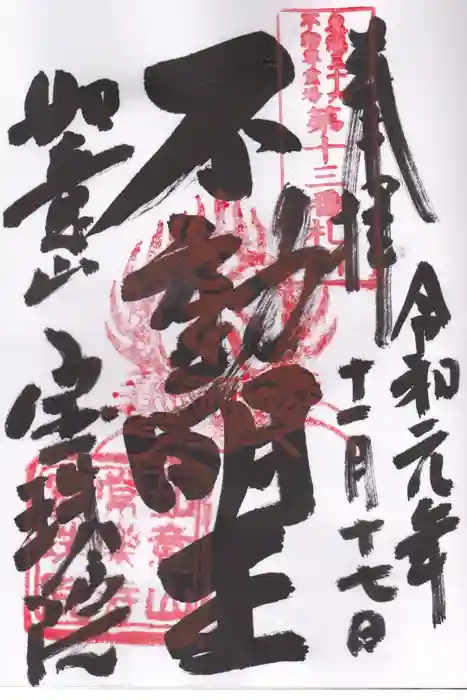 奉拝
令和元年
十一月十七日
不動尊霊場
第十三番札所
不動明王
如意山
宝珠院